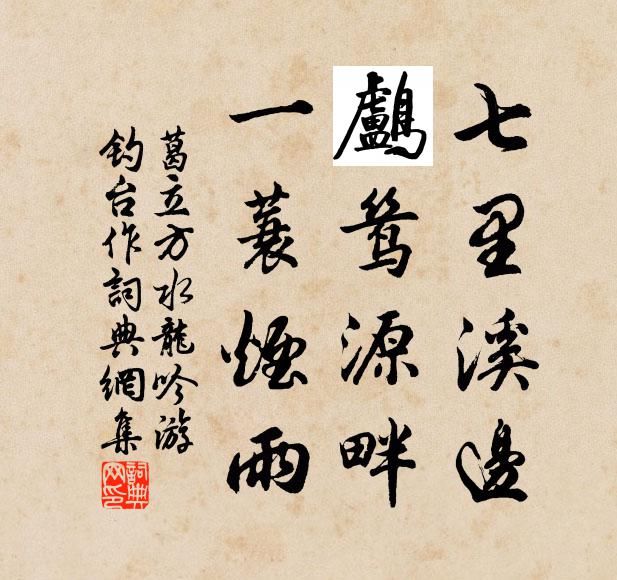 七里溪邊
鸕鶿源畔
一蓑煙雨
葛立方水龍吟游
钓台作詞典網集
詞典
网印